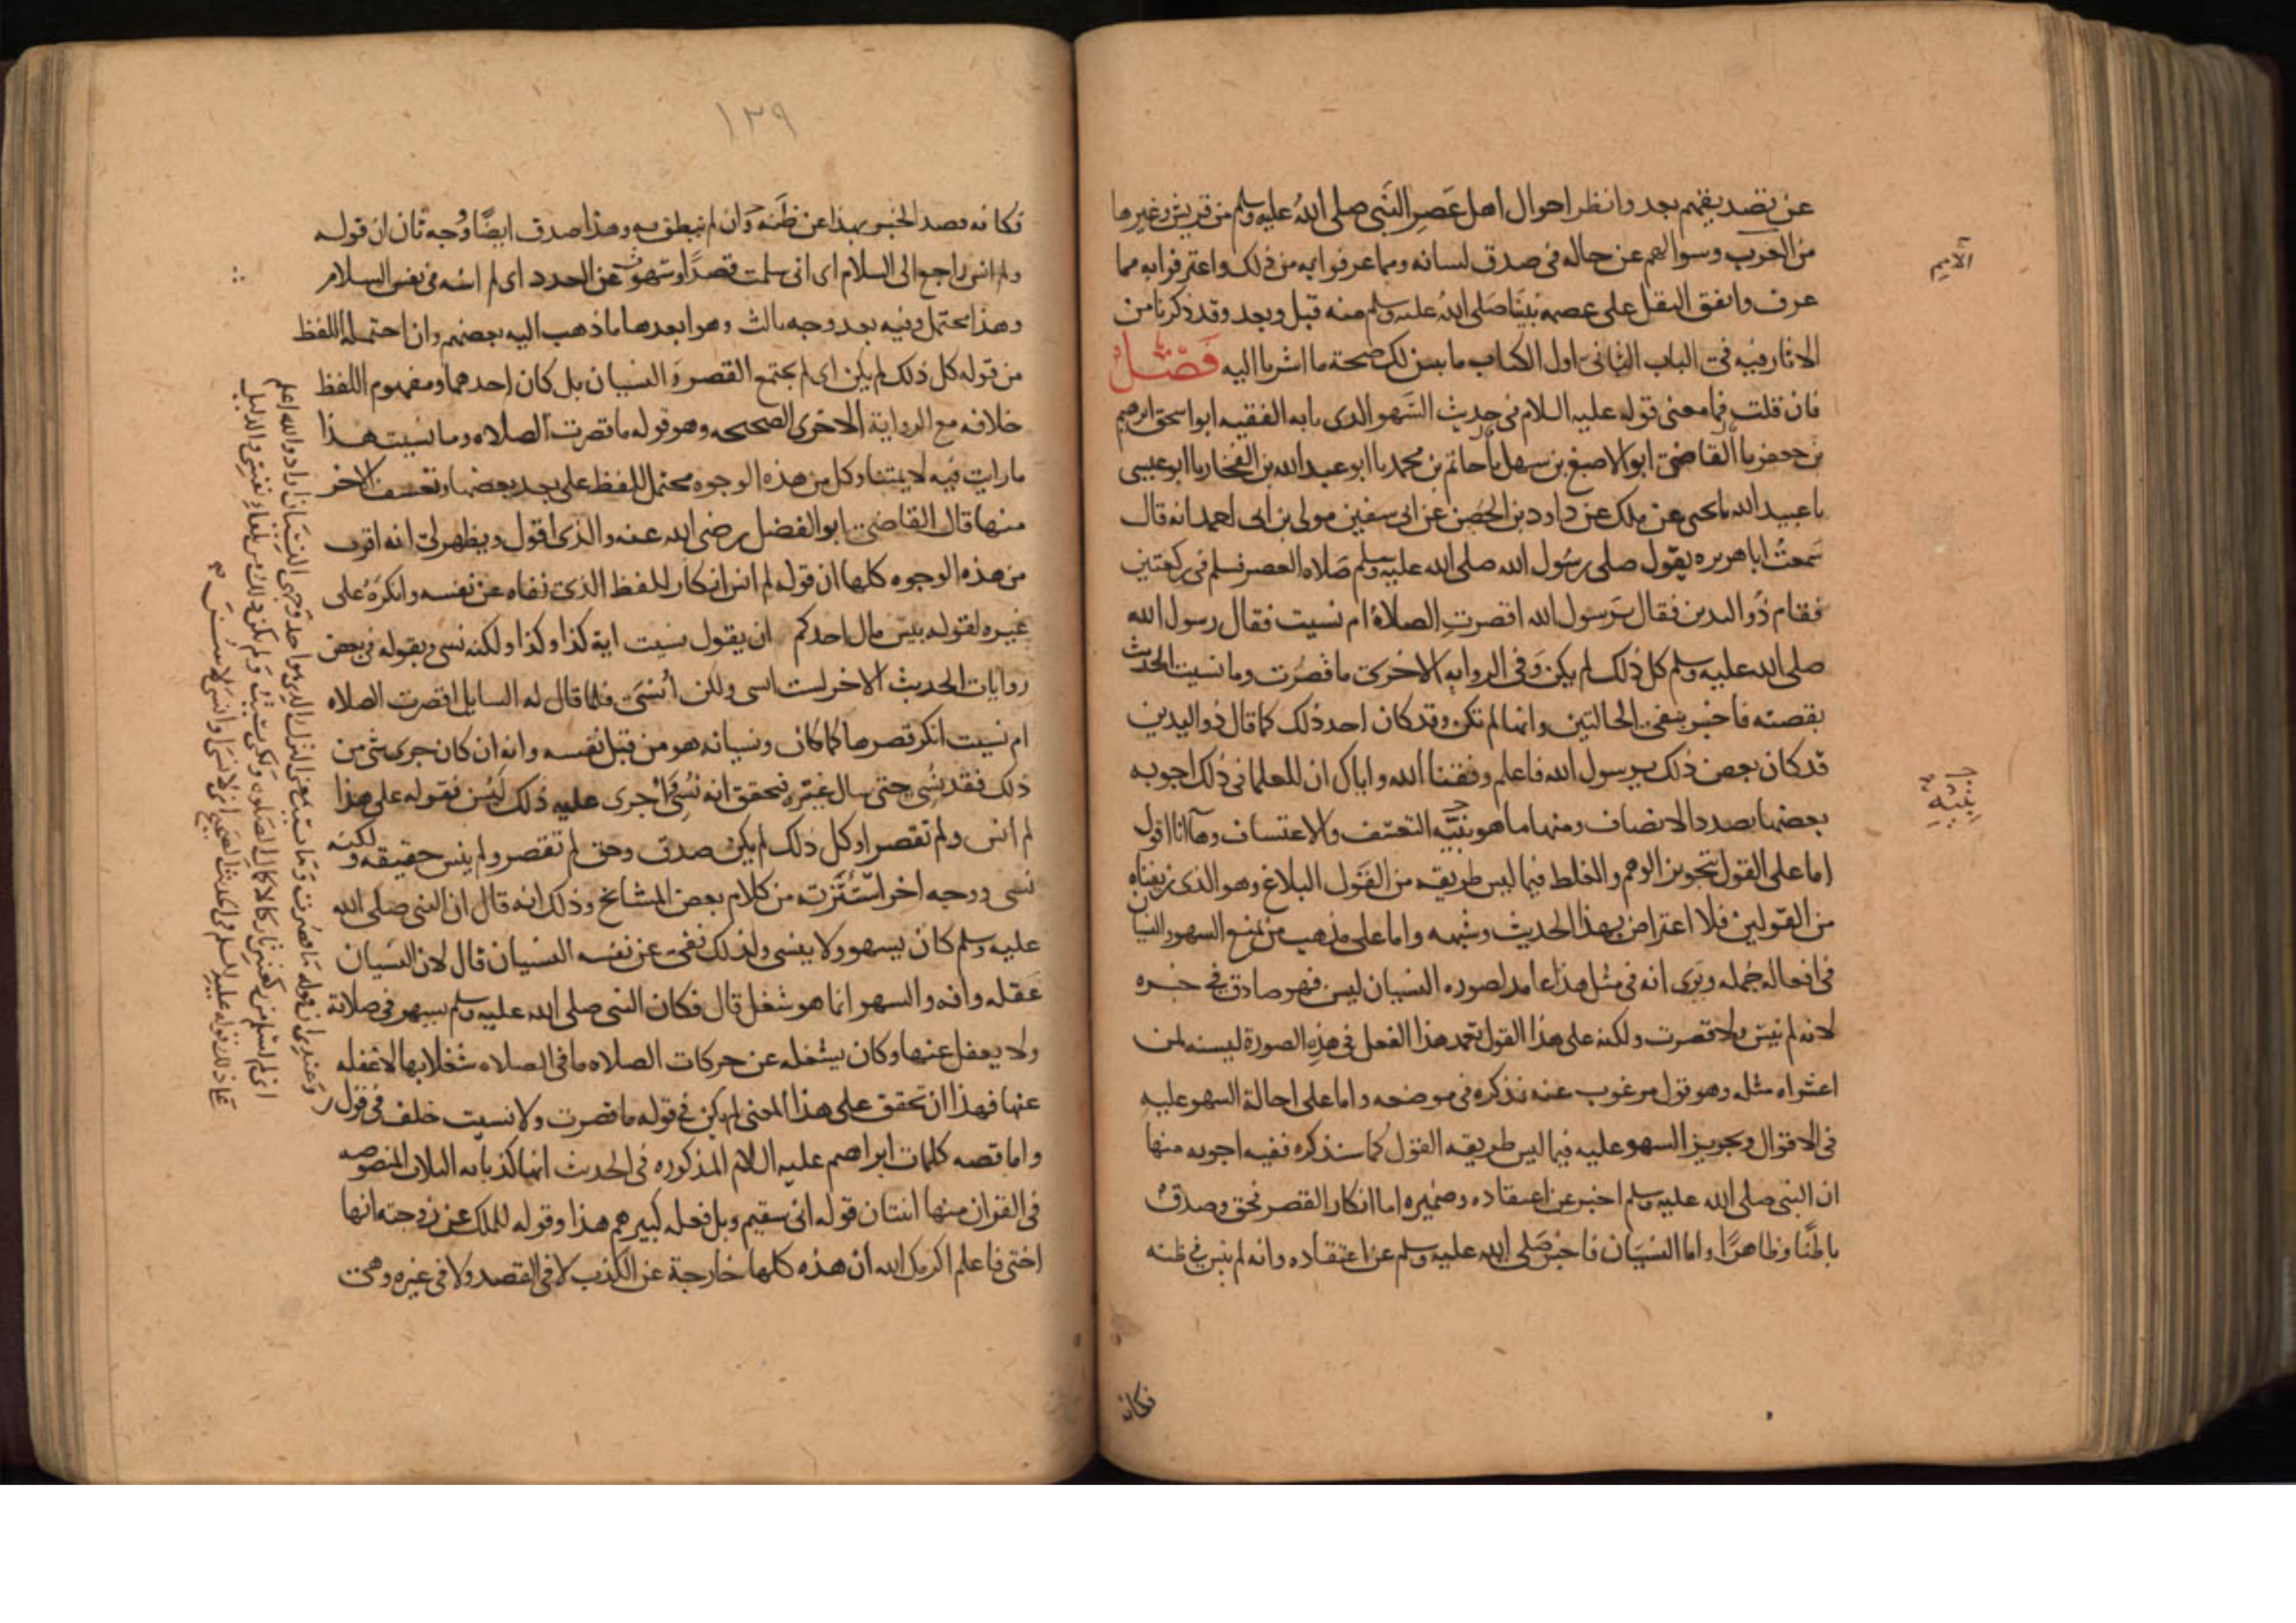 عن تصديقهم بعد وانظر احوال اهل عَصر النَّبى صلى اللهُ عليه وسلم من قريش وغيرها
من العرب وسوالهم عن حاله فى صدق لسانه وما عرفوا به من ذلك واعترفوا به مما
عرف واتفق النقل على عصمة نبينا صَلى اللهُ عليه وسلم منه قبل وبعد وقد ذكرنا من
الاثار فيه فى الباب الثانى اول الكتاب ما يبين لك صحة ما اشرنا اليه فَصْلٌ
فان قلت فما معنى قوله عليه السلام فى حديث السَّهو الذى نا به الفقيه ابو اسحق ابرهيم
بن جعفر نا القاضى ابو الاصبغ بن سهل نا حاتم بن محمد نا ابو عبد الله بن الفخار نا ابو عيسى
نا عبيد الله نا يحيى عن ملك عن داود بن الحُصَين عن ابى سفين مولى بن ابى احمد انه قال
سَمعتُ ابا هريره يقول صلى رسُول الله صلى الله عليه وسلم صَلاه العصر فسلم فى ركعتين
فقام ذو اليدين فقال يَرسول الله اقصرتِ الصلاةُ ام نسيت فقال رسول الله
صلى الله عليه وسلم كل ذلك لم يكن وَفى الروايه الاخرى ما قصُرت وما نسيت الحديث
بقصته فاخبر بنفى الحالتين وانها لم تكن وقد كان احد ذلك كما قال ذو اليدين
قد كان بعض ذلك يرسول الله فاعلم وفقنا الله واياك ان للعلما فى ذلك اجوبه
بعضها بصدد الانصاف ومنها ما هو بنيَّه التعسف والاعتساف وها انا اقول
اما على القول بتجويز الوهم والغلط فيما ليس طريقه من القَول البلاغ وهو الذى زيفناه
من القولين فلا اعتراض بهذا الحديث وشبهه واما على مذهب من يمنع السهو والنسيان
فى افعاله جُمله ويَرى انه فى مثل هذا عامد لصوره النسيان ليسن فهو صادق فى خبره
لانه لم ينس ولا قصرت ولكنه على هذا القول تعمد هذا الفعل فى هذِه الصورة ليسنه لمن
اعتراه مثله وهو قول مرغوب عنه نذكره فى موضعه واما على احالة السهو عليه
فى الاقوال وتجويز السهو عليه فيما ليس طريقه القول كما سنذكره ففيه اجوبه منها
ان النبى صلى الله عليه وسلم اخبر عن اعتقاده وضميره اما انكار القصر فحق وصدقٌ
باطنًا وظاهرًا واما النسيَان فاخبر صَلى الله عليه وسلم عن اعتقاده وانه لم ينس فى ظنه
فكانه
١٣٩
فكانه قصد الخبر بهذا عن ظَنه وَان لم ينطق به وهذا صدق ايضًا وَوجه ثان ان قوله
ولم انس راجع الى السلام اى انى سلمت قصدًا وسَهوتُ عن العدد اى لم اسْه فى نفس السلام
وهذا محتمل وفيه بعد ووجه ثالث وهو ابعدها ما ذهب اليه بعضهم وان احتمله اللفظ
من قوله كل ذلك لم يكن اى لم يجتمع القصر وَالنسيان بل كان احدهما ومفهوم اللفظ
خلافه مع الرواية الاخرى الصحيحه وهو قوله ما قصرت الصلاه وما نسيت هذا
ما رايت فيه لايمتنا وكل من هذه الوجوه محتمل للفظ على بعد بعضها وتعسف الاخر
منها قال القاضى ابو الفضل رضى الله عنه والذى اقول ويظهر لى انه اقرب
من هذه الوجوه كلها ان قوله لم انس انكار للفظ الذى نفاه عن نفسه وانكرَهُ على
غيره لقوله بيس مال احدكم ان يقول نسيت اية كذا وكذا ولكنه نسى وبقوله فى بعض
روايات الحديث الاخر لست انسى ولكن أُنَسَّى فلما قال له السايل اقصرت الصلاه
ام نسيت انكر قصرها كما كان ونسيانه هو من قِبَل نفسه وانه ان كان جرى شى من
ذلك فقد نُسِّى حتى سال غيره فتحقق انه نُسِّى وَاُجرى عليه ذلك ليَسُن فقوله على هذا
لم انس ولم تقصر او كل ذلك لم يكن صدق وحق لم تقصر ولم ينس حقيقه ولكنه
نُسى ووجه اخر استَثَرته من كلام بعض المشايخ وذلك انه قال ان النبى صلى الله
عليه وسلم كان يسهو ولا ينسى ولذلك نفى عن نفسه النسيان قال لان النسيان
غَفله وافه والسهو انما هو شغل قال فكان النبى صلى الله عليه وسلم يسهو فى صلاته
ولا يغفل عنها وكان يشغله عن حركات الصلاه ما فى الصلاه شغلا بها لا غفله
عنها فهذا ان تحقق على هذا المعنى لم يكن فى قوله ما قصرت ولا نسيت خلف فى قول
واما قصه كلمات ابراهيم عليه السلام المذكوره فى الحديث انها كذباته الثلاث المنصوصه
فى القران منها اثنتان قوله انى سقيم وبل فعله كبيرهم هذا وقوله للملك عن زوجته انها
اختى فاعلم اكرمك الله ان هذه كلها خارجة عن الكذب لا فى القصد ولا فى غيره وهى
وعندى ان قوله ما قصرت وما نسيت بمعنى الترك الذى هو احد وجهى النسيان اراد والله اعلم
انى لم اسلم من ركعتين تاركا لاكمال الصلوة ولكنى نسيت ولم يكن ذلك من تلقاء نفسى والدليل
على ذلك قوله عليه السلم فى الحديث الصحيح انى لانسى او انسى لاسن